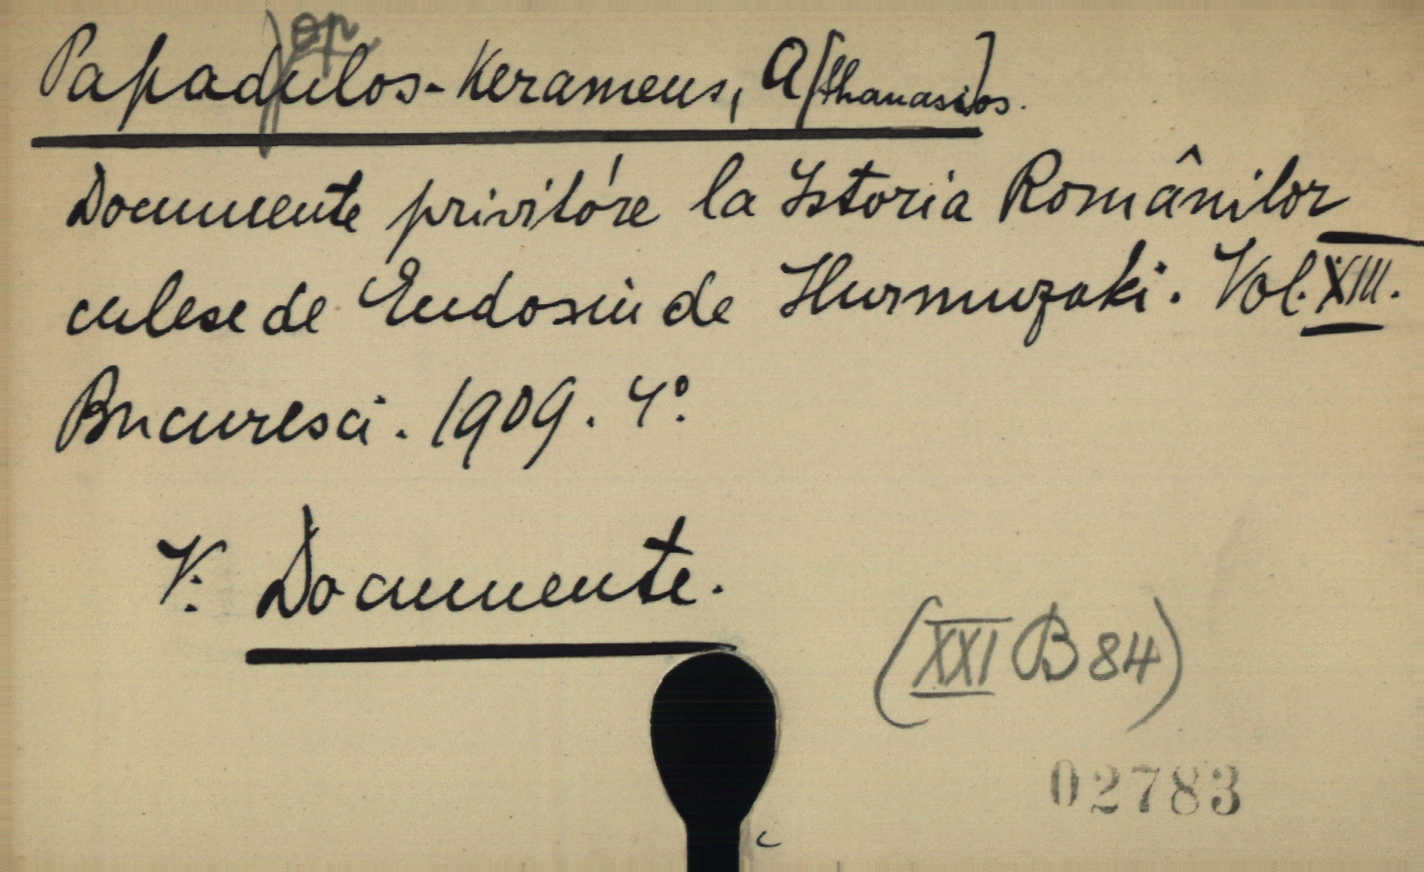 op
Papadulos-Kerameus, A[thanasi]os.
Documente privitóre la Istoria Românilor
culese de Eudosiu de Hurmuzaki. Vol. XIII.
Bucuresci. 1909. 4°.
V: Documente.
(XXI B 84)
02783